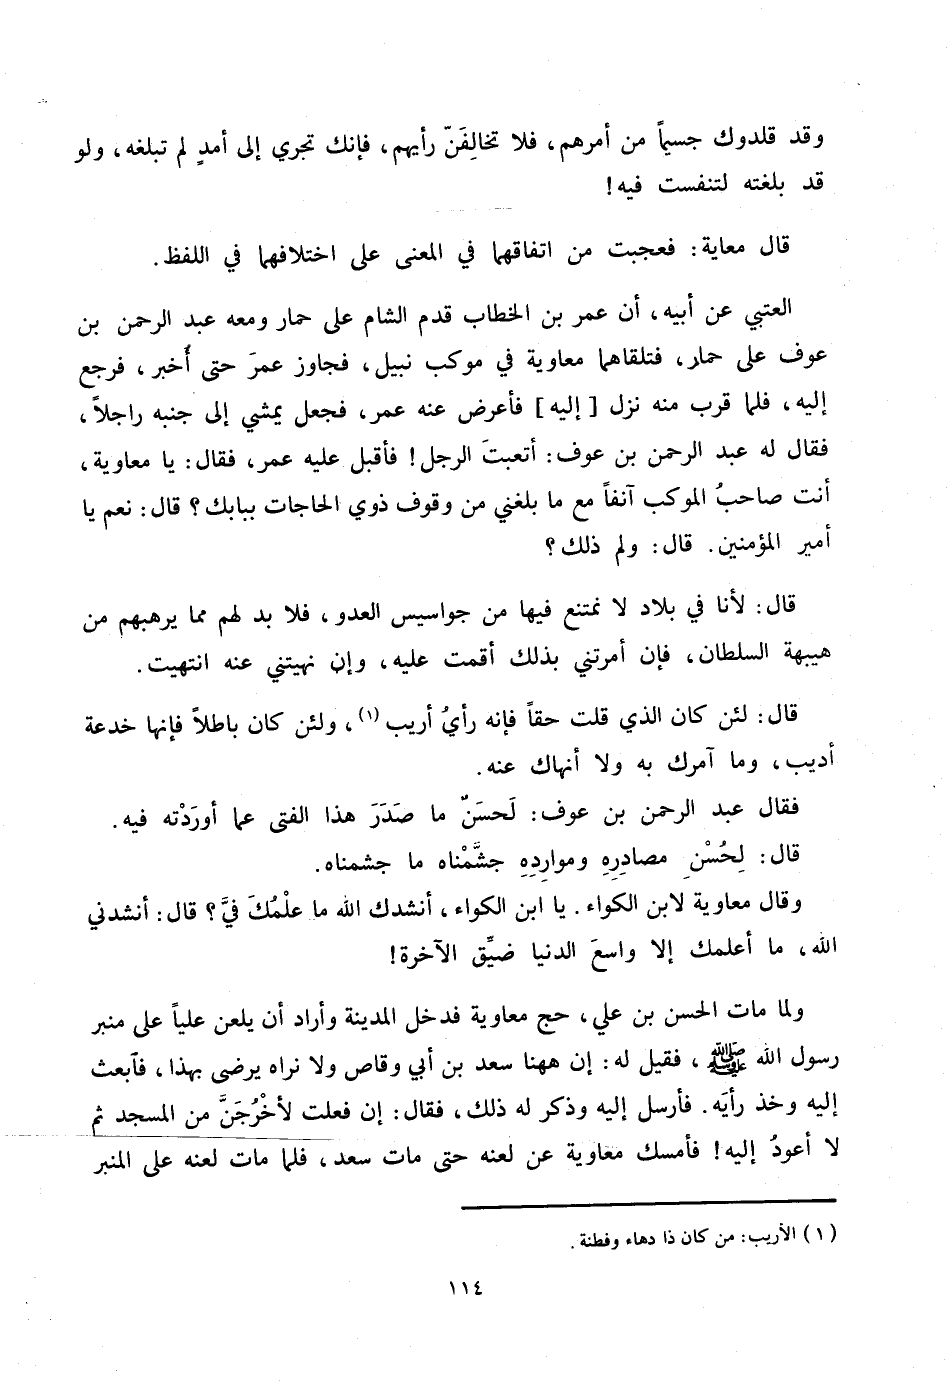 وقد قلدوك جسيماً من أمرهم، فلا تخالِفَنّ رأيهم، فإنك تجري إلى أمدٍ لم تبلغه، ولو
قد بلغته لتنفست فيه!
قال معاية: فعجبت من اتفاقهما في المعنى على اختلافهما في اللفظ.
العتبي عن أبيه، أن عمر بن الخطاب قدم الشام على حمار ومعه عبد الرحمن بن
عوف على حمار، فتلقاهما معاوية في موكب نبيل، فجاوز عمرَ حتى أُخبر، فرجع
إليه، فلما قرب منه نزل [إليه] فأعرض عنه عمر، فجعل يمشي إلى جنبه راجلاً،
فقال له عبد الرحمن بن عوف: أتعبتَ الرجل! فأقبل عليه عمر، فقال: يا معاوية،
أنت صاحبُ الموكب آنفاً مع ما بلغني من وقوف ذوي الحاجات ببابك؟ قال: نعم يا
أمير المؤمنين. قال: ولم ذلك؟
قال: لأنا في بلاد لا نمتنع فيها من جواسيس العدو، فلا بد لهم مما يرهبهم من
هيبهة السلطان، فإن أمرتني بذلك أقمت عليه، وإن نهيتني عنه انتهيت.
قال: لئن كان الذي قلت حقاً فإنه رأيُ أريب(١)، ولئن كان باطلاً فإنها خدعة
أديب، وما آمرك به ولا أنهاك عنه.
فقال عبد الرحمن بن عوف: لَحسَنٌ ما صَدَرَ هذا الفتى عما أوردْته فيه.
قال: لِحُسْنِ مصادِرِهِ ومواردِهِ جشَّمْناه ما جشمناه.
وقال معاوية لابن الكواء. يا ابن الكواء، أنشدك الله ما علْمُكَ فيَّ؟ قال: أنشدني
الله، ما أعلمك إلا واسعَ الدنيا ضيِّق الآخرة!
ولما مات الحسن بن علي، حج معاوية فدخل المدينة وأراد أن يلعن علياً على منبر
رسول الله ﷺ، فقيل له: إن ههنا سعد بن أبي وقاص ولا نراه يرضى بهذا، فآبعث
إليه وخذ رأيَه. فأرسل إليه وذكر له ذلك، فقال: إن فعلت لأخْرُجَنَّ من المسجد ثم
لا أعودُ إليه! فأمسك معاوية عن لعنه حتى مات سعد، فلما مات لعنه على المنبر
(١) الأريب: من كان ذا دهاء وفطنة.
١١٤